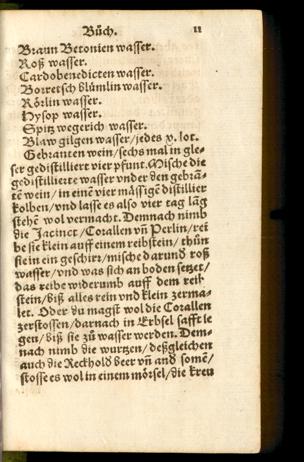 Bůch. 11
Braun Betonien wasser.
Roß wasser.
Cardobenedicten wasser.
Borretsch blümlin wasser.
Rörlin wasser.
Hysop wasser.
Spitz wegerich wasser.
Blaw gilgen wasser/jedes v. lot.
Gebranten wein/sechs mal in gle-
ser gedistilliert vier pfunt. Mische die
gedistillierte wasser vnder den gebrā-
tē wein/in einē vier mässigē distillier
kolben/vnd lasse es also vier tag lāg
stehē wol vermacht. Demnach nimb
die Jacinct/Corallen vñ Perlin/rei
be sie klein auff einem reibstein/thůn
sie in ein geschirr/mische darund roß
wasser/vnd was sich an boden setzet/
das reibe widerumb auff dem reib
stein/biß alles rein vnd klein zerma-
let. Oder du magst wol die Corallen
zerstossen/darnach in Erbsel safft le
gen/biß sie zů wasser werden. Dem-
nach nimb die wurtzen/deßgleichen
auch die Reckhold beer vñ and somē/
stosse es wol in einem mörsel/die kreu